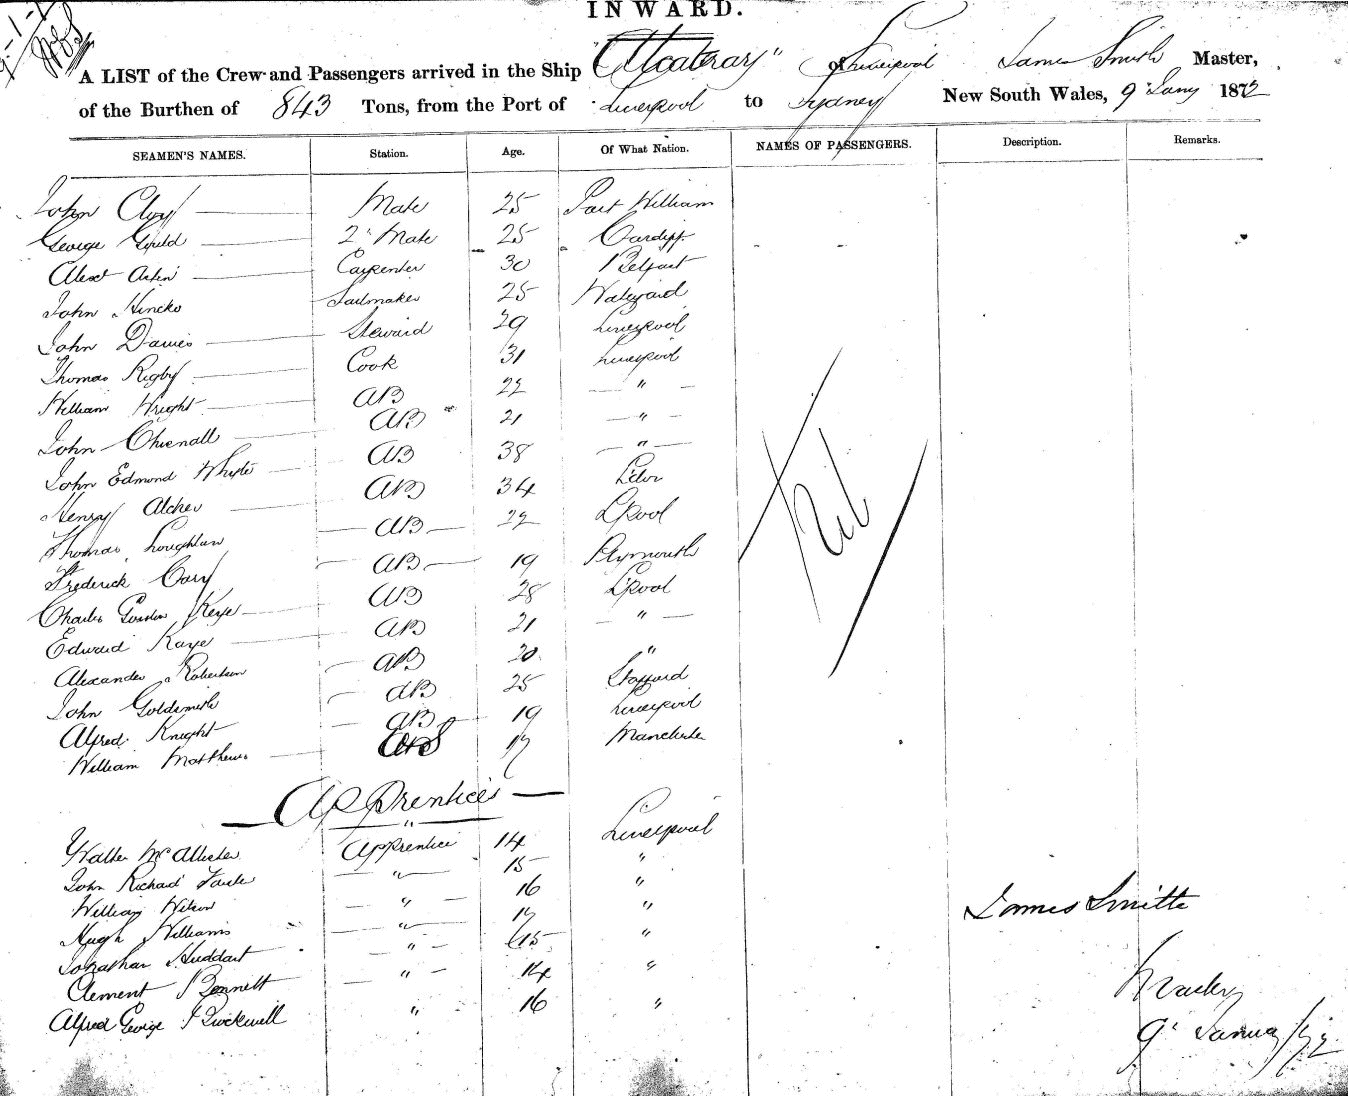 INWARD.
A LIST of the Crew and Passengers arrived in the Ship " " of Liverpool James Smith Master,
of the Burthen of 843 Tons, from the Port of Liverpool to Sydney New South Wales, 9 Jany 1872
SEAMEN'S NAMES. Station. Age. Of What Nation. NAMES OF PASSENGERS. Description. Remarks.
John Cloy Mate 25 Port William
George Gould 2d Mate 25 Cardiff
Alexr Carpenter 30 Belfast
John Hincks Sailmaker 25 Waterford
John Davies Steward 29 Liverpool
Thomas Rigby Cook 31 Liverpool
William Wright AB 22 "
John Chienall AB 21 "
John Edmond Whyte AB 38 "
Henry AB 34
Thomas Loughlan AB 22 L'pool
Frederick Cory AB 19 Plymouth
Charles Gordon Keye AB 28 L'pool
Edward Kaye AB 21 "
Alexander Robertson AB 20 "
John Goldsmith AB 25 Stafford
Alfred Knight AB 19 Liverpool
William Matthews OS 17 Manchester
Nil
Apprentices
"
Walter McAllister Apprentice 14 Liverpool
John Richard " 15 "
William Wilson " 16 "
Hugh Williams " 17 "
Jonathan Huddart " 15 "
Clement Bennett " 14 "
Alfred George Brockwell " 16 "
James Smith
9 January /72